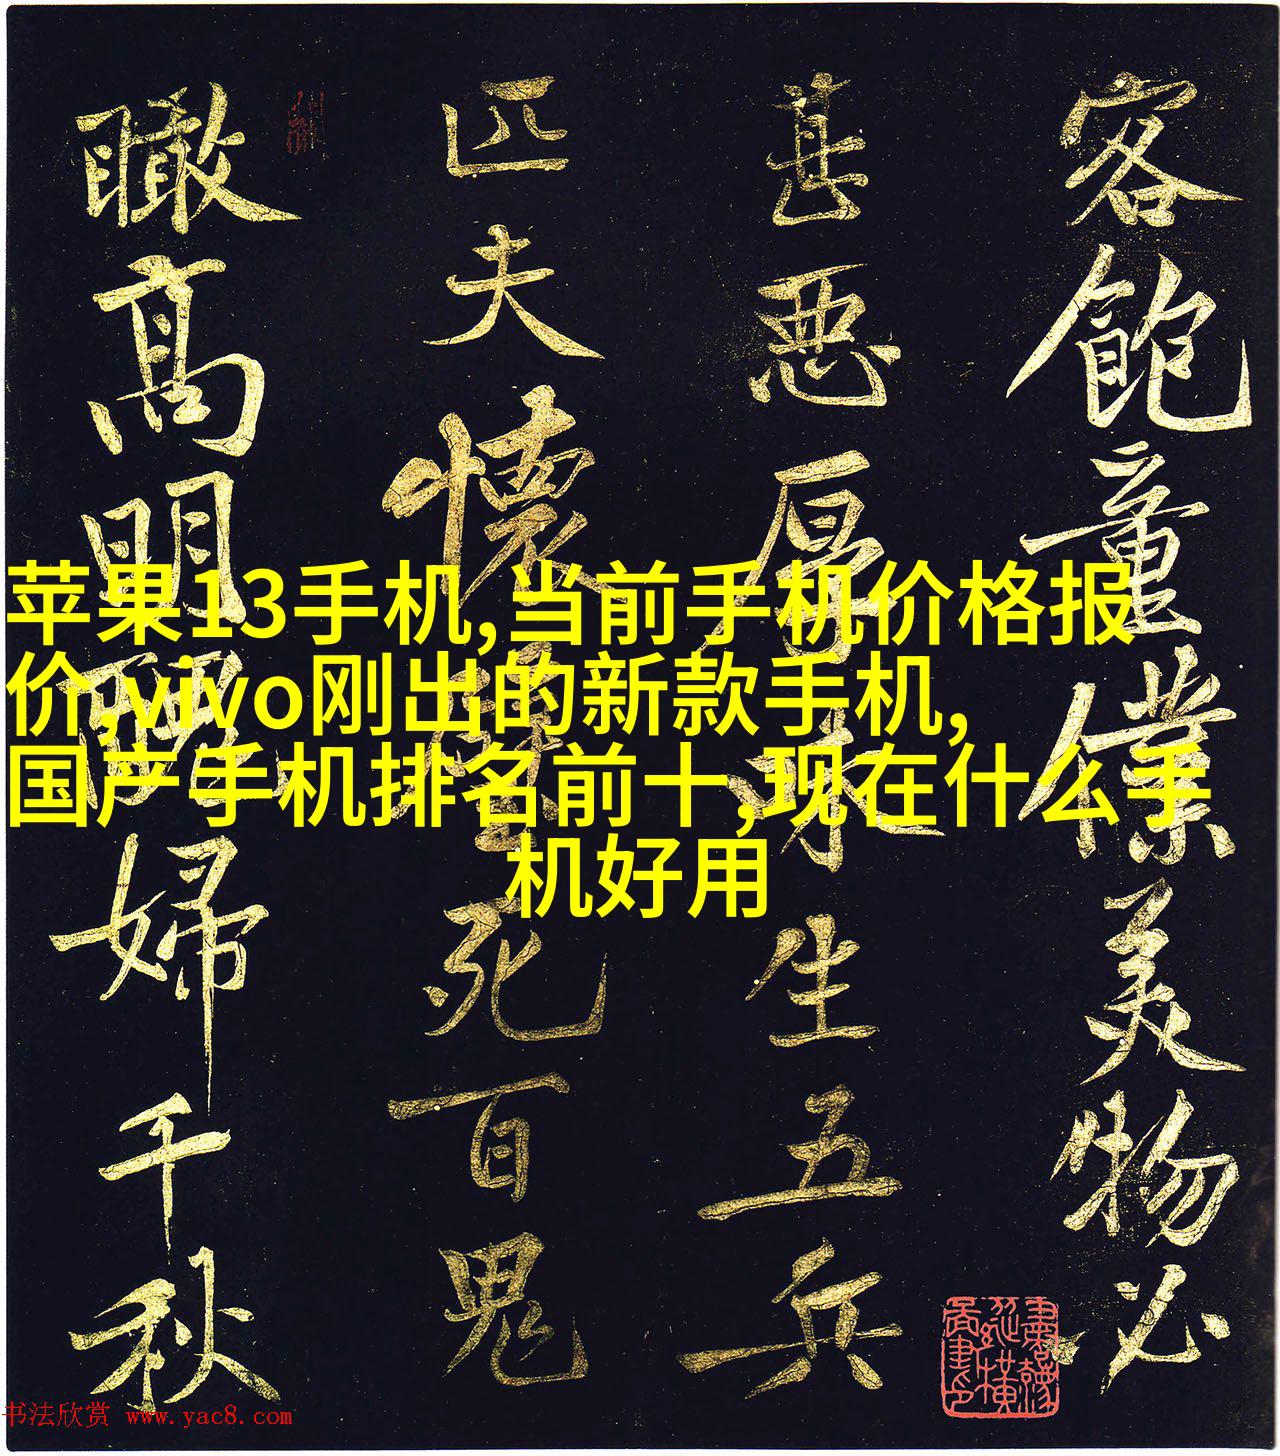 苹果13手机,当前手机价格报
价,vivo刚出的新款手机,
国产手机排名前十,现在什么手
机好用
客飽童僕美物必
甚惡厚味生五兵
匹夫懷璧死百鬼
瞰高明醜婦千秋
书法欣赏 www.yac8.com